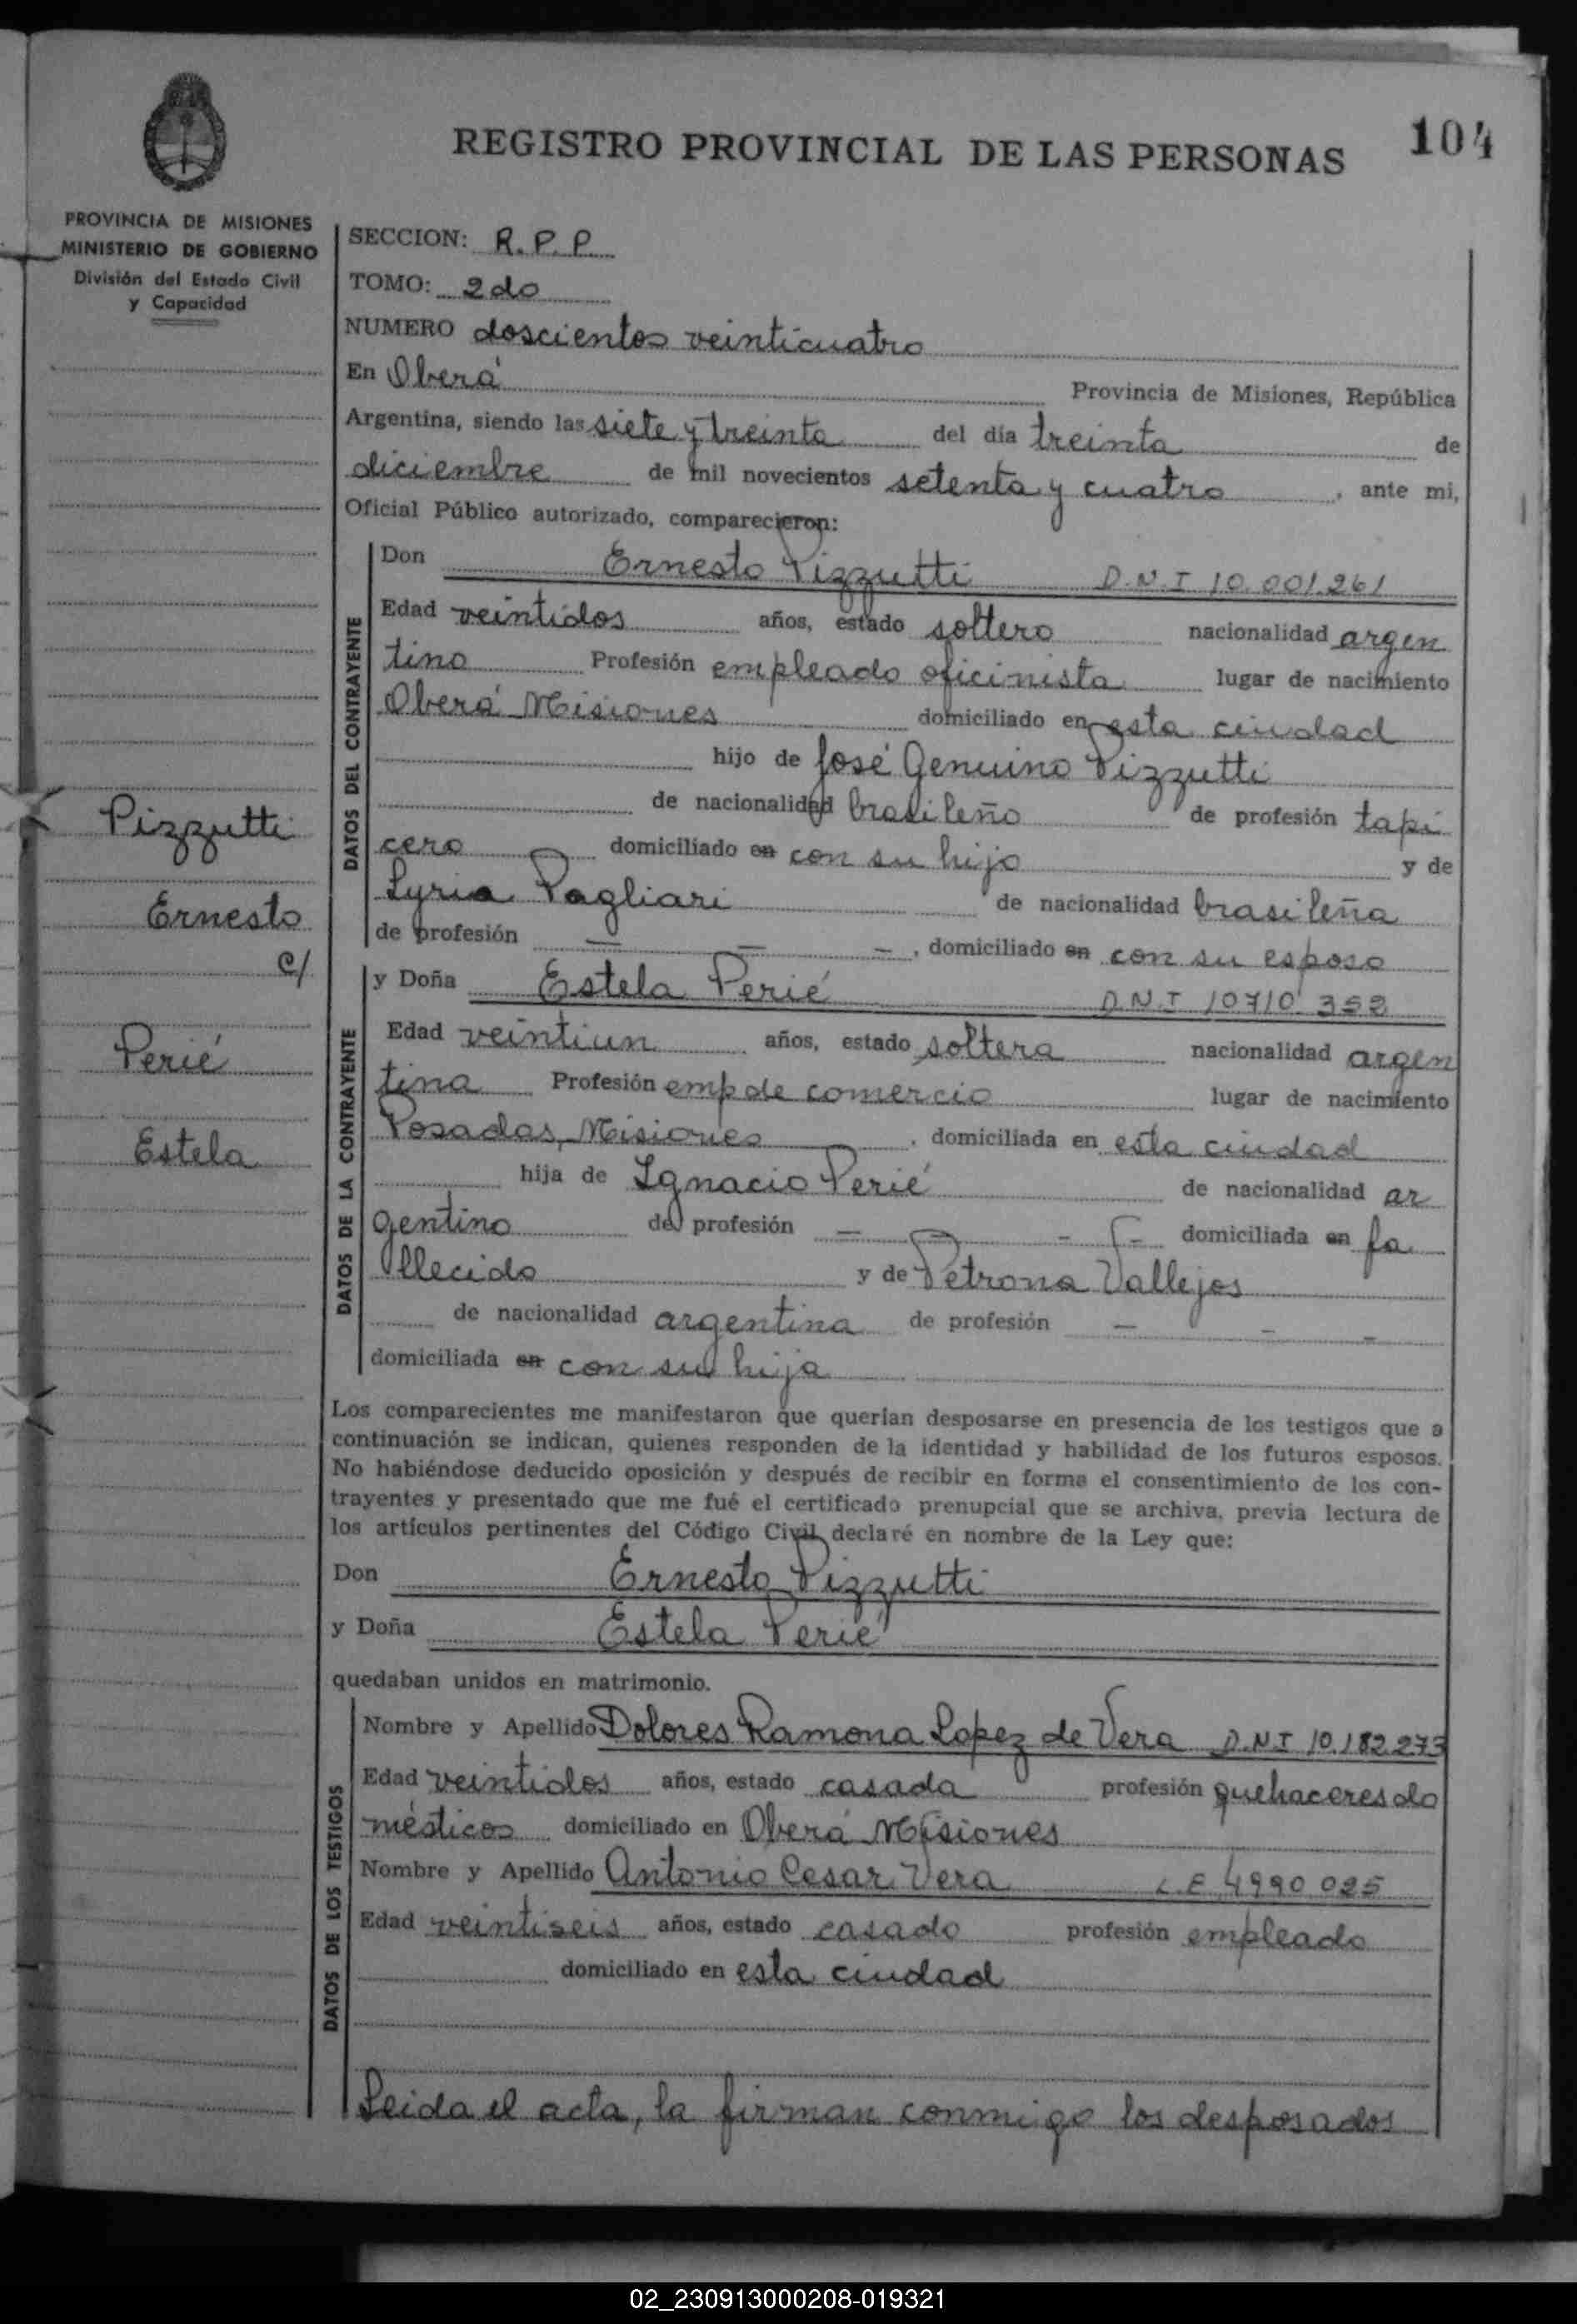 104
REGISTRO PROVINCIAL DE LAS PERSONAS
PROVINCIA DE MISIONES
MINISTERIO DE GOBIERNO
División del Estado Civil
y Capacidad
SECCION: R.P.P.
TOMO: 2do
NUMERO doscientos veinticuatro
En Oberá Provincia de Misiones, República
Argentina, siendo las siete y treinta del día treinta de
diciembre de mil novecientos setenta y cuatro, ante mi,
Oficial Público autorizado, comparecieron:
DATOS DEL CONTRAYENTE
Don Ernesto Pizzutti D.N.I 10.001.261
Edad veintidos años, estado soltero nacionalidad argen
tino Profesión empleado oficinista lugar de nacimiento
Oberá Misiones domiciliado en esta ciudad
hijo de José Genuino Pizzutti
de nacionalidad brasileño de profesión tapi
cero domiciliado en con su hijo y de
Lyria Pagliari de nacionalidad brasileña
de profesión — — —, domiciliado en con su esposo
Pizzutti
Ernesto
c/
Perié
Estela
DATOS DE LA CONTRAYENTE
y Doña Estela Perié D.N.I 10710.352
Edad veintiun años, estado soltera nacionalidad argen
tina Profesión emp de comercio lugar de nacimiento
Posadas, Misiones, domiciliada en esta ciudad
hija de Ignacio Perié de nacionalidad ar
gentino de profesión — — — domiciliada en fa
llecido y de Petrona Vallejos
de nacionalidad argentina de profesión — — —
domiciliada en con su hija
Los comparecientes me manifestaron que querían desposarse en presencia de los testigos que a
continuación se indican, quienes responden de la identidad y habilidad de los futuros esposos.
No habiéndose deducido oposición y después de recibir en forma el consentimiento de los con-
trayentes y presentado que me fué el certificado prenupcial que se archiva, previa lectura de
los artículos pertinentes del Código Civil, declaré en nombre de la Ley que:
Don Ernesto Pizzutti
y Doña Estela Perié
quedaban unidos en matrimonio.
DATOS DE LOS TESTIGOS
Nombre y Apellido Dolores Ramona Lopez de Vera D.N.I 10.182.273
Edad veintidos años, estado casada profesión quehaceres do
mésticos domiciliado en Oberá Misiones
Nombre y Apellido Antonio Cesar Vera L.E 4990025
Edad veintiseis años, estado casado profesión empleado
domiciliado en esta ciudad
Leida el acta, la firman conmigo los desposados
02_230913000208-019321